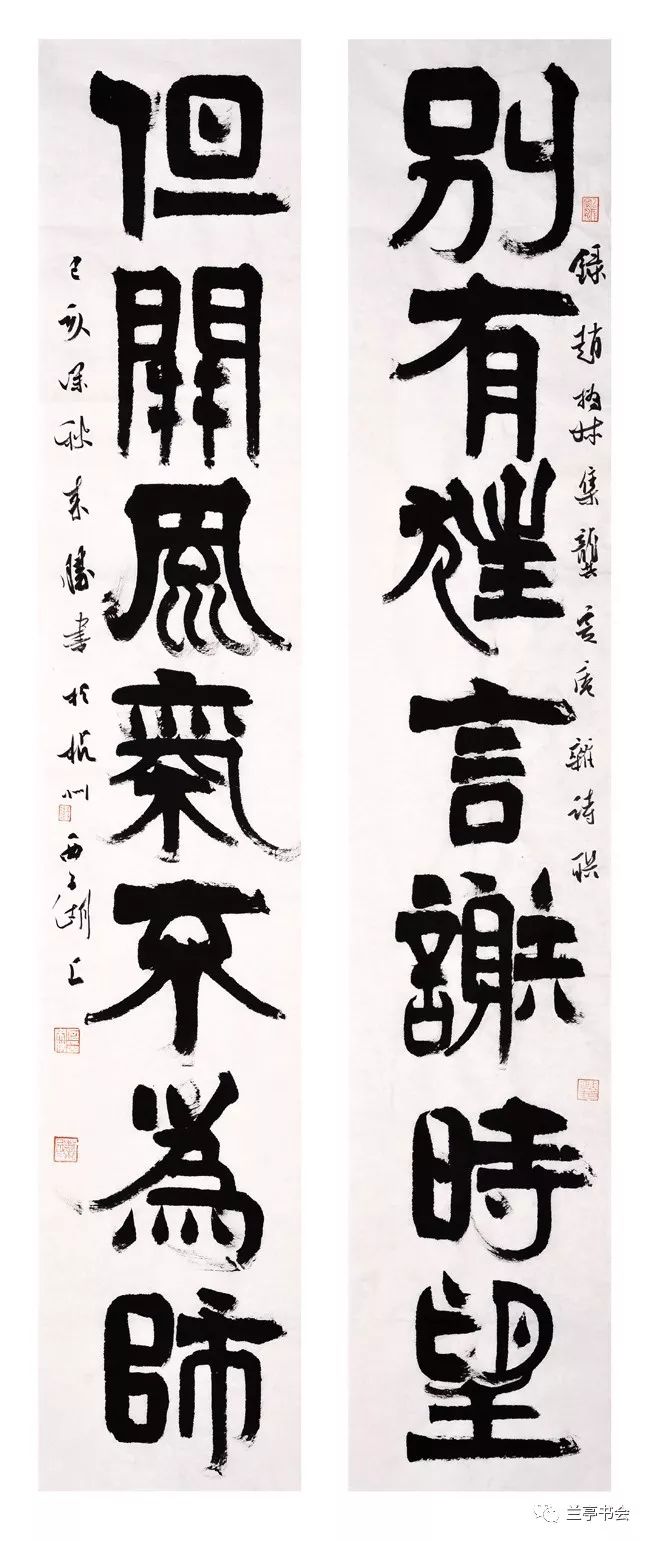 別有狂言謝時望
錄趙樸初集龔定庵雜詩聯
但開風氣不為師
己亥深秋来勝書於杭州西子湖上
兰亭书会